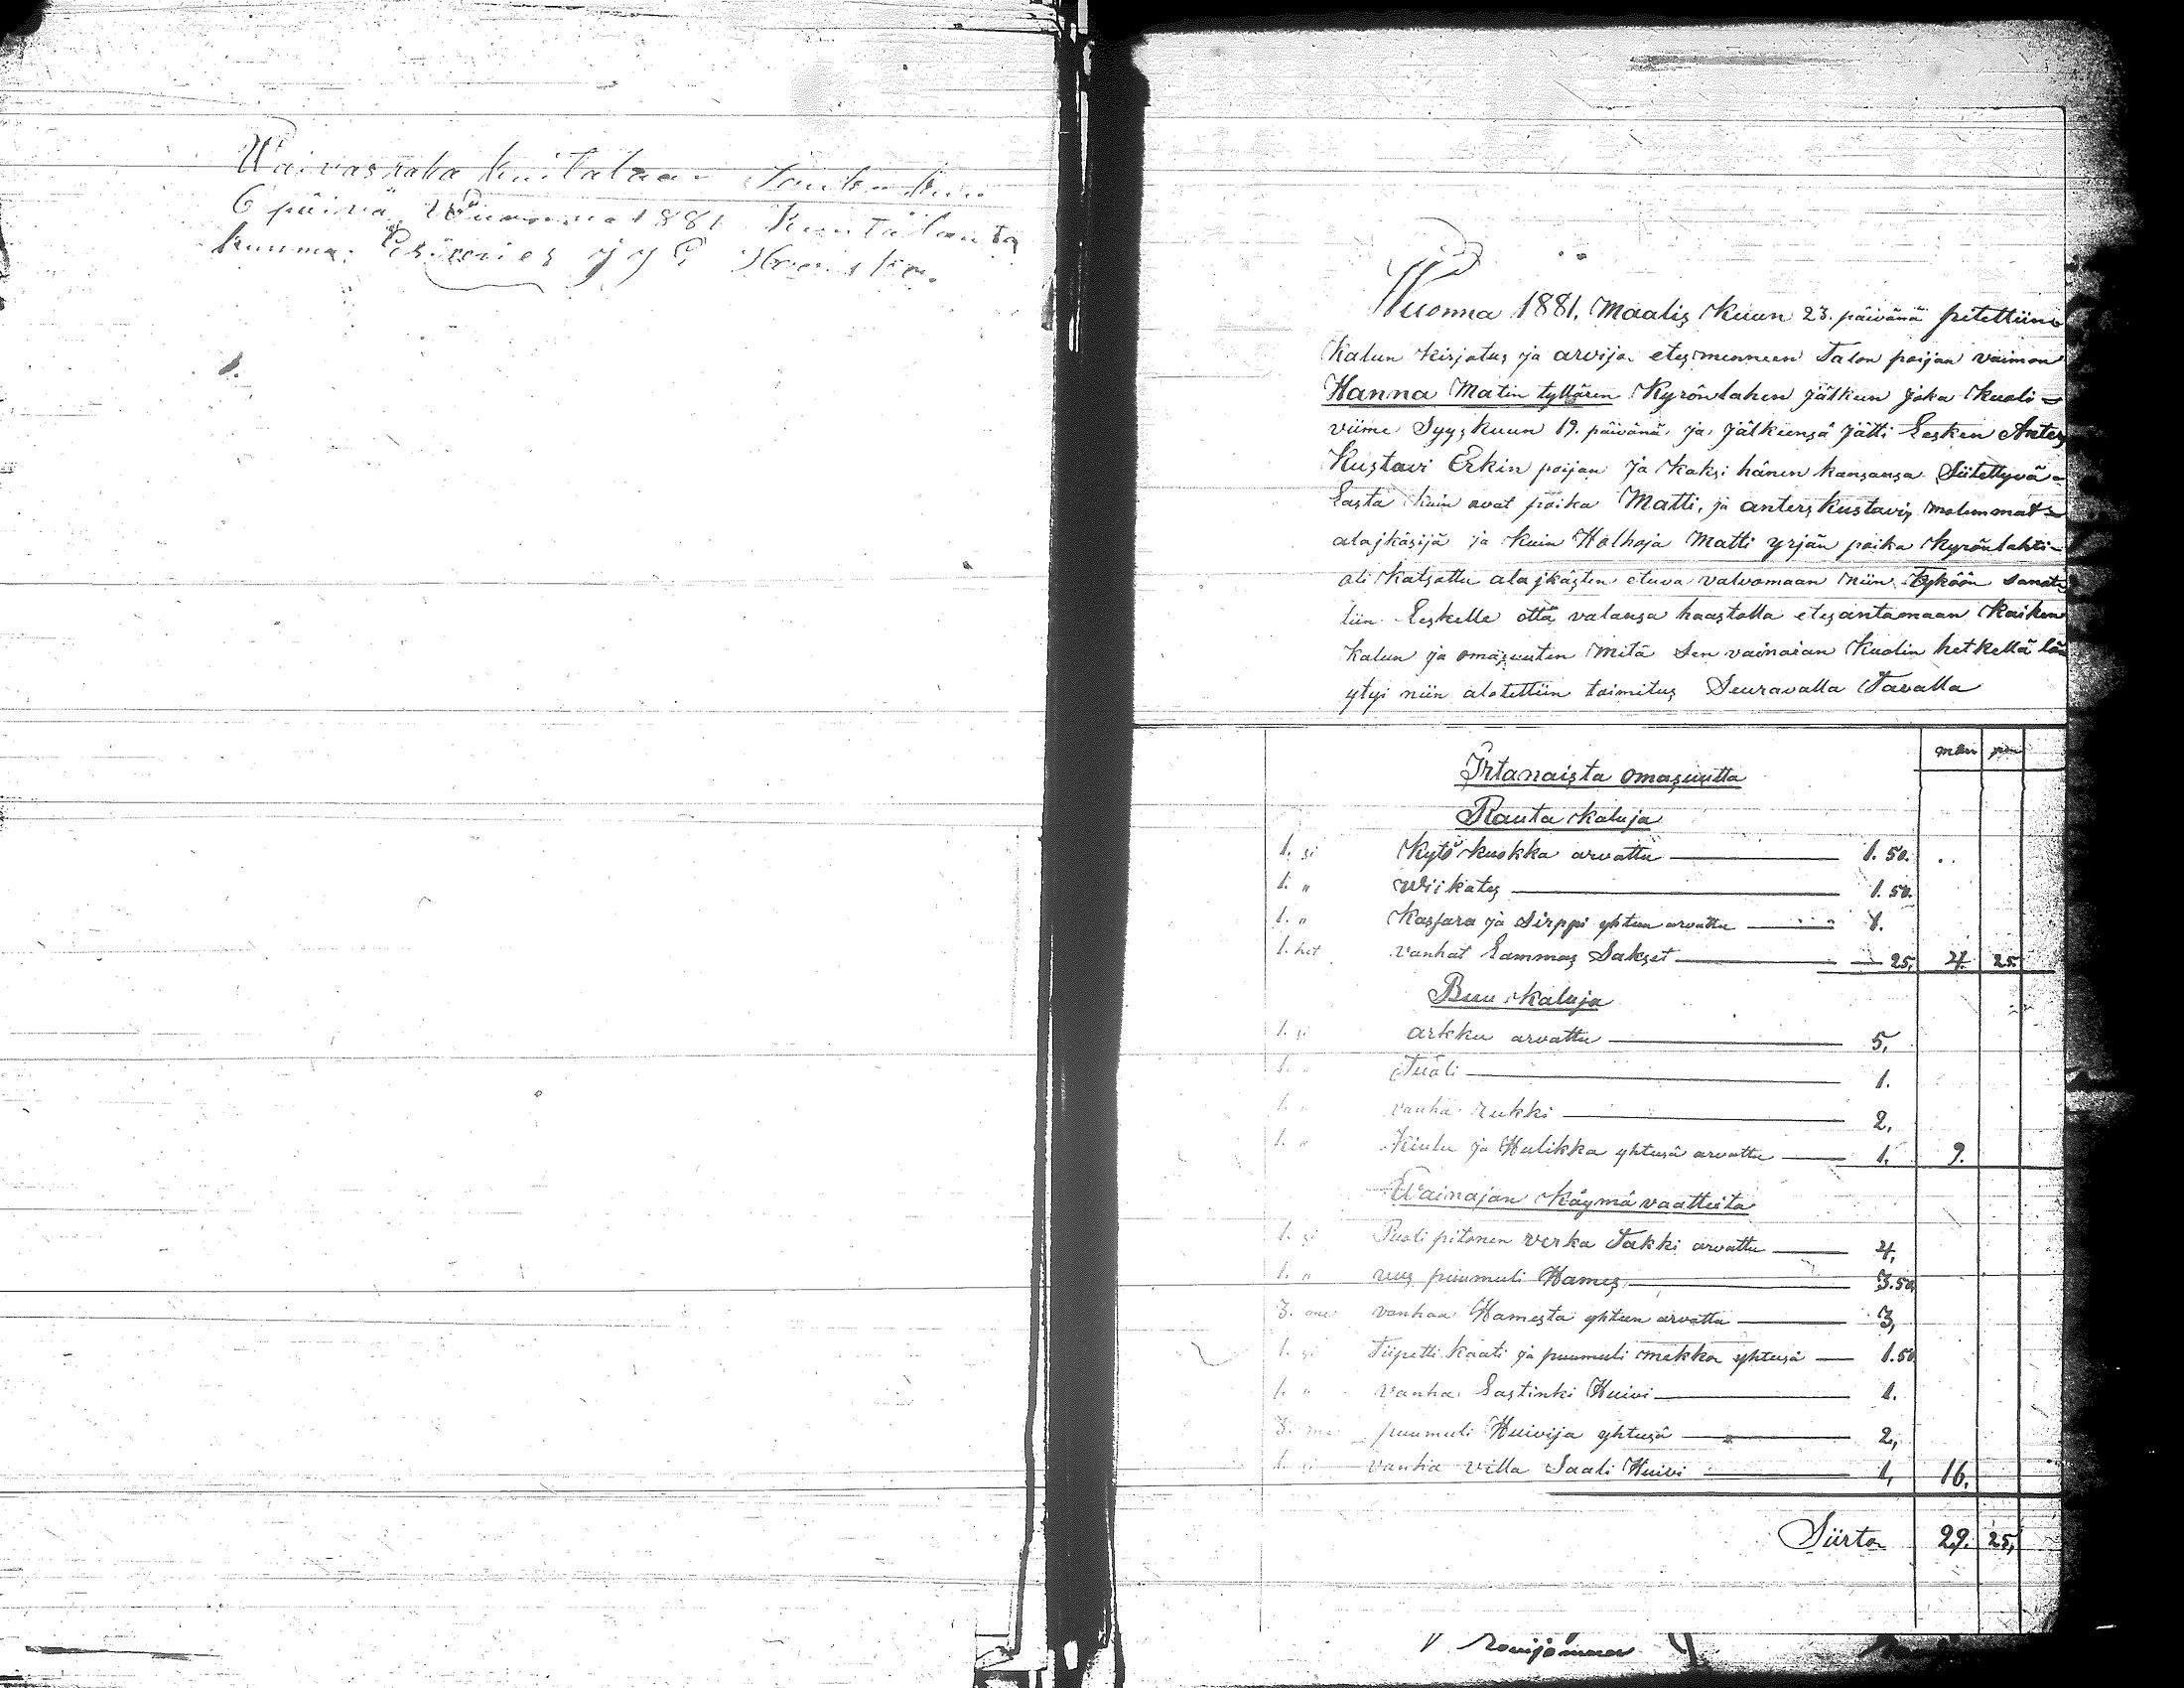 Waivasraha kuitataan Touko kuu
6 päivä Wuonna 1881
kunna. Esimies
Wuonna 1881. Maalis Kuun 23. päivänä pitettiin
Kalun kirjotus ja arvijo etesmenneen Talon poijan vaimon
Hanna Matin tyttären Kyrönlahen jälkeen joka Kuoli
viime Syyskuun 19. päivänä ja jälkeensä jätti Lesken Anters
Kustavi Erkin poijan ja kaksi hänen kansansa Siitettyvä
Lasta kuin ovat poika Matti, ja anters kustavi, molemmat
alajkäsijä ja kuin Holhoja Matti yrjän poika Kyrönlahti
oli katsottu alajkästen etuva valvomaan niin tyköön sanottu
tiin Leskelle että valansa haastolla etesantamaan Kaiken
kalun ja omasuuten mitä Sen vainaian Kuolin hetkellä lö
ytyi niin alotettiin toimitus Seuravalla Tavalla
man pen
Irtanaista omasuutta
Rauta kaluja
1. si Kytö kuokka arvattu 1. 50.
1. " Wiikates 1. 50.
1. " Kassara ja Sirppi yhteen arvattu 1.
1. het vanhat Lammas Sakset 25, 4. 25
Buu kaluja
1. si arkku arvattu 5,
1. " Tuoli 1.
1. " vanha rukki 2,
1. " Kiulu ja Hulikka yhtesä arvattu 1. 9.
Wainajan Käymä vaatteita
1. si Puoli pitonen verka Takki arvattu 4,
1. " uus puumuli Hames 3. 50,
3. vanhaa Hamesta yhteen arvattu 3,
1. si Tüpetti kaati ja puumuli mekko yhtesä 1. 50
1. " vanha Lastinki Huivi 1.
3. puumuli Huivija yhtesä 2,
1. si vanha villa Saali Huivi 1, 16.
Siirto 29. 25,